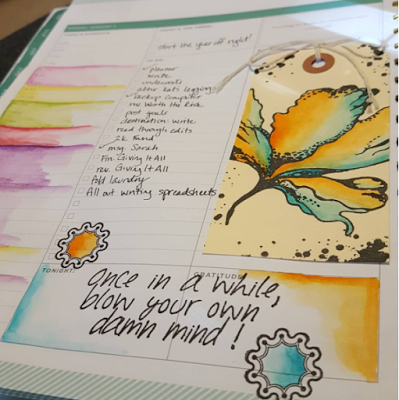 start the year off right!
✓ planner
write
underwents
after kats leggings
✓ backup computer
rev. Worth the Risk
post goals
destination: write
read through edits
2k Fund
✓ msg. Sarah
Fin. Giving It All
rev. Giving It All
Fold laundry
All out writing spreadsheets
TONIGHT:
GRATITUDE
once in a while,
blow your own
damn mind!